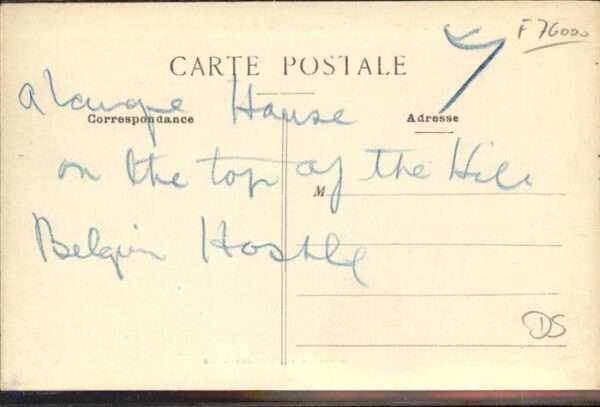 F 76000
CARTE POSTALE
a large House
Correspondance
Adresse
on the top of the Hill
M
Belgium Hostle
DS